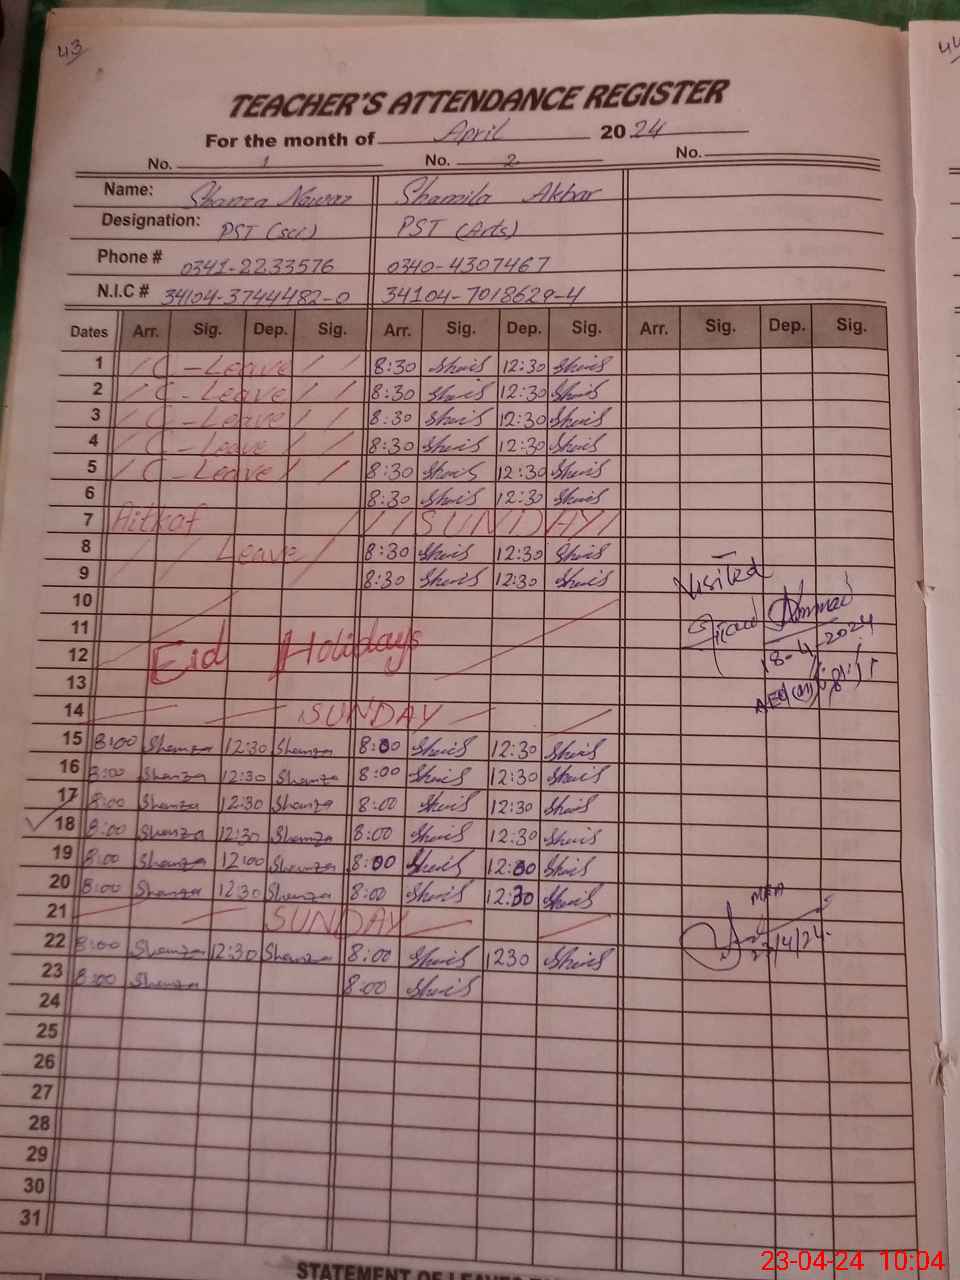 43
44
TEACHER'S ATTENDANCE REGISTER
For the month of April 2024
No. 1 No. 2 No.
Name: Shanza Nawaz Shamila Akbar
Designation: PST (sci) PST (Arts)
Phone # 0341-2233576 0340-4307467
N.I.C # 34104-3744482-0 34104-7018629-4
Dates Arr. Sig. Dep. Sig. Arr. Sig. Dep. Sig. Arr. Sig. Dep. Sig.
1 C-Leave 8:30 12:30
2 C-Leave 8:30 12:30
3 C-Leave 8:30 12:30
4 C-Leave 8:30 12:30
5 C-Leave 8:30 12:30
6 8:30 12:30
7 Aitkaf SUNDAY
8 Leave 8:30 12:30
9 8:30 12:30
Visited
10
11
Ahmad
12 Eid Holidays
18-4-2024
13
14 SUNDAY
15 8:00 Shanza 12:30 Shanza 8:00 12:30
16 8:00 Shanza 12:30 Shanza 8:00 12:30
17 8:00 Shanza 12:30 Shanza 8:00 12:30
18 8:00 Shanza 12:30 Shanza 8:00 12:30
19 8:00 Shanza 12:00 Shanza 8:00 12:00
20 8:00 Shanza 12:30 Shanza 8:00 12:30
21 SUNDAY
MEA
22 8:00 Shanza 12:30 Shanza 8:00 1230
23/4/24
23 8:00 Shanza 8:00
24
25
26
27
28
29
30
31
STATEMENT OF LEAVES
23-04-24 10:04